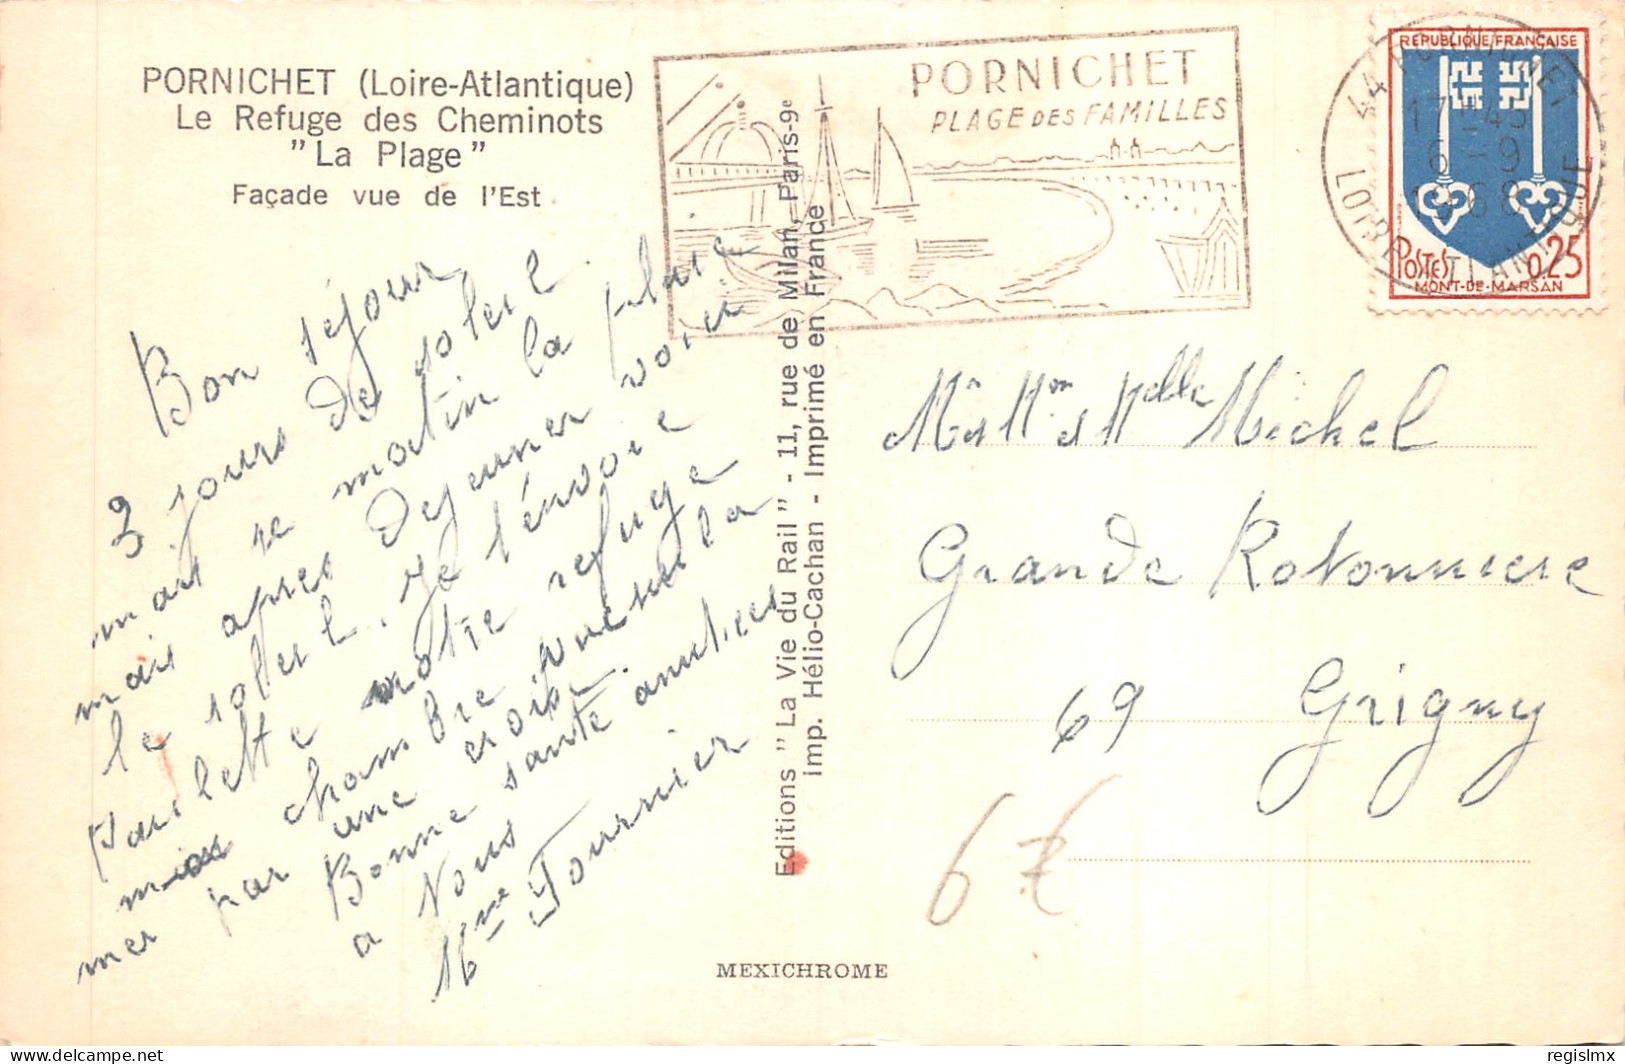 PORNICHET (Loire-Atlantique)
Le Refuge des Cheminots
"La Plage"
Façade vue de l'Est
PORNICHET
PLAGE DES FAMILLES
44 PORNICHET
17H45
6-9
1968
LOIRE ATLANTIQUE
REPUBLIQUE FRANÇAISE
POSTES 0.25
MONT-DE-MARSAN
Bon séjour
3 jours de soleil
mais ce matin la pluie
mais apres dejeuner voici
le soleil. Je t'envoie
Paulette notre refuge
ma chambre marquee la
mer par une croix.
Bonne santé amities
a Vous
Mme Tournier
Mr et Mme et Melle Michel
Grande Rotonniere
69 Grigny
6€
Editions "La Vie du Rail" - 11, rue de Milan, Paris-9e
imp. Hélio-Cachan - Imprimé en France
MEXICHROME
delcampe.net
regislmx